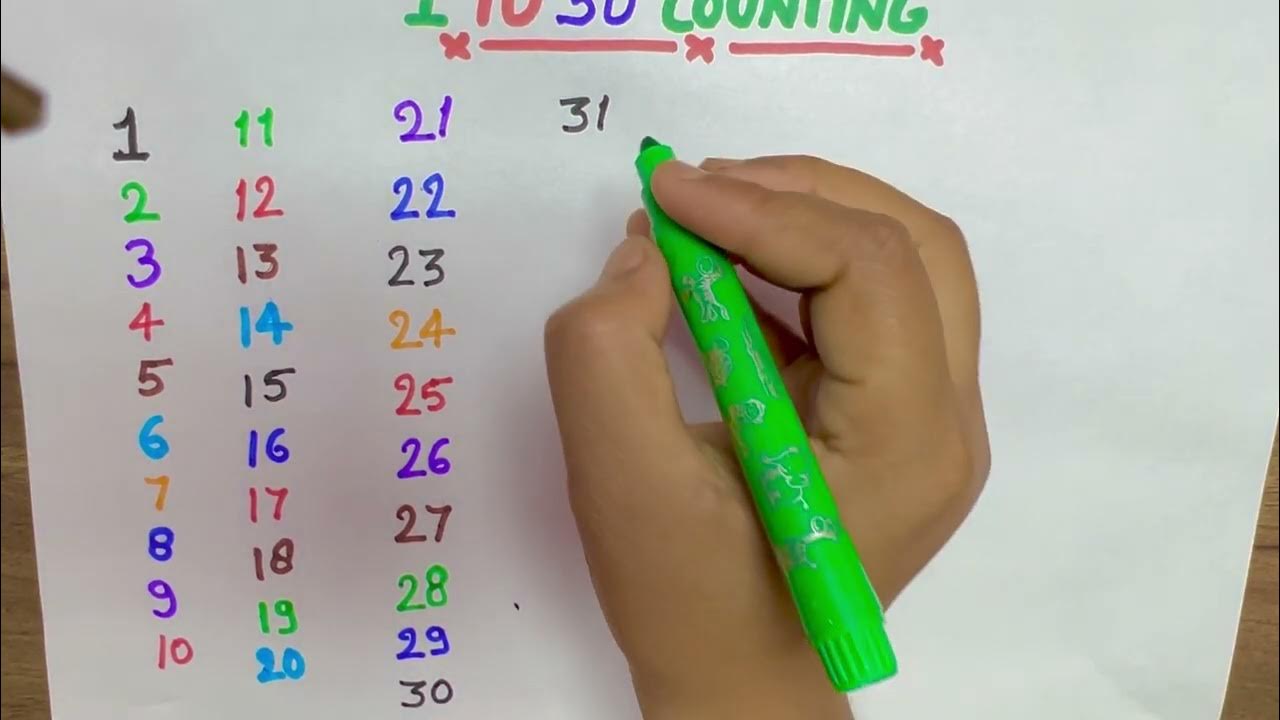 1 TO 50 COUNTING
1 11 21 31
2 12 22
3 13 23
4 14 24
5 15 25
6 16 26
7 17 27
8 18 28
9 19 29
10 20 30